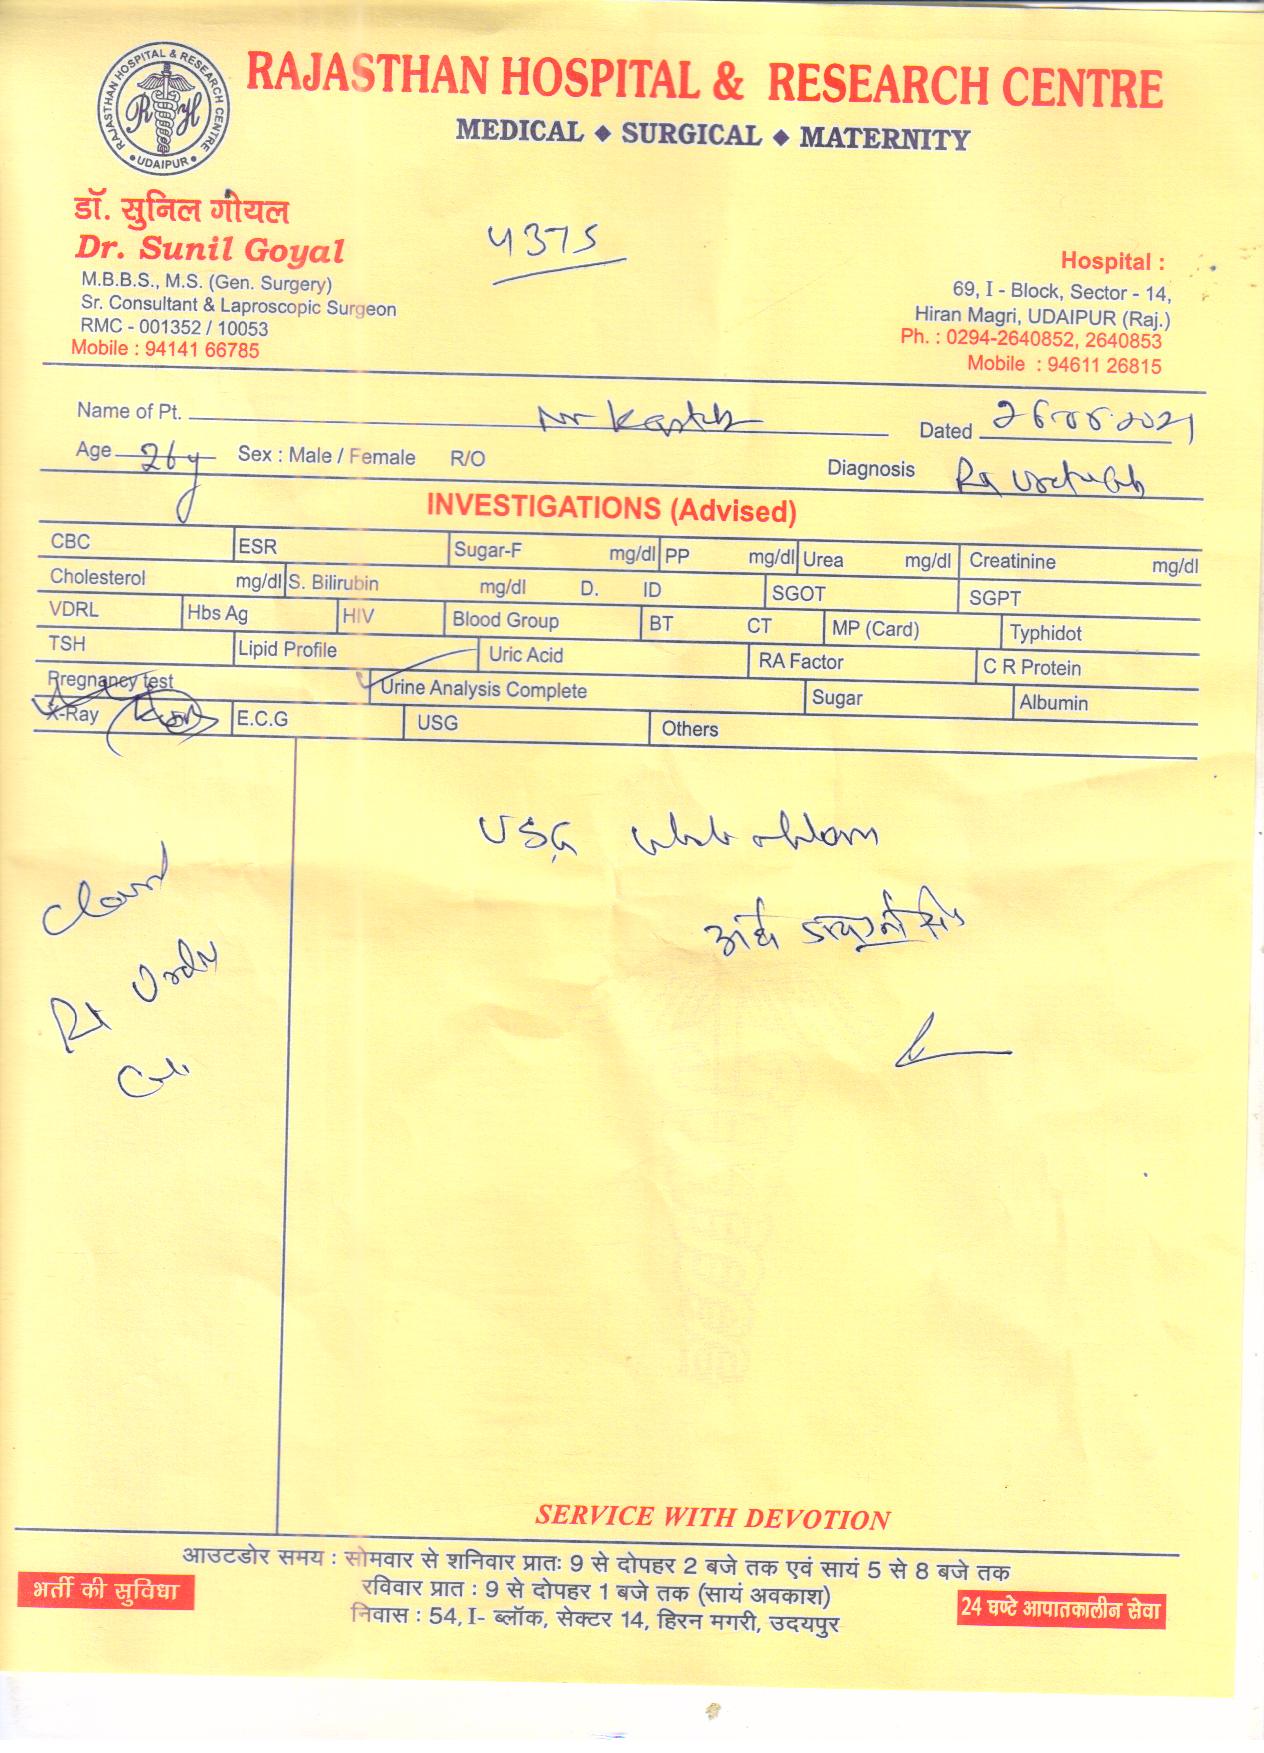 RAJASTHAN HOSPITAL & RESEARCH CENTRE
RAJASTHAN HOSPITAL & RESEARCH CENTRE
RH
• UDAIPUR •
MEDICAL ◆ SURGICAL ◆ MATERNITY
डॉ. सुनिल गोयल
Dr. Sunil Goyal
M.B.B.S., M.S. (Gen. Surgery)
Sr. Consultant & Laproscopic Surgeon
RMC - 001352 / 10053
Mobile : 94141 66785
4375
Hospital :
69, I - Block, Sector - 14,
Hiran Magri, UDAIPUR (Raj.)
Ph. : 0294-2640852, 2640853
Mobile : 94611 26815
Name of Pt. Mr Dated
Age 26y Sex : Male / Female R/O Diagnosis Rt
INVESTIGATIONS (Advised)
CBC ESR Sugar-F mg/dl PP mg/dl Urea mg/dl Creatinine mg/dl
Cholesterol mg/dl S. Bilirubin mg/dl D. ID SGOT SGPT
VDRL Hbs Ag HIV Blood Group BT CT MP (Card) Typhidot
TSH Lipid Profile Uric Acid RA Factor C R Protein
Pregnancy test Urine Analysis Complete Sugar Albumin
X-Ray E.C.G USG Others
USG whole abdomen
अर्थ डायग्नोसिस
Rt
SERVICE WITH DEVOTION
आउटडोर समय : सोमवार से शनिवार प्रातः 9 से दोपहर 2 बजे तक एवं सायं 5 से 8 बजे तक
रविवार प्रात : 9 से दोपहर 1 बजे तक (सायं अवकाश)
निवास : 54, I- ब्लॉक, सेक्टर 14, हिरन मगरी, उदयपुर
भर्ती की सुविधा
24 घण्टे आपातकालीन सेवा